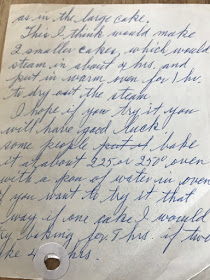 as in the large cake.
This I think would make
2 smaller cakes, which would
steam in about 4 hrs. and
put in warm oven for 1 hr.
to dry out the steam
I hope if you try it you
will have good luck
some people put it bake
it at about 225 or 250° oven
with a pan of water in oven
if you want to try it that
way if one cake I would
try baking for 7 hrs. if two
like 4 hrs.